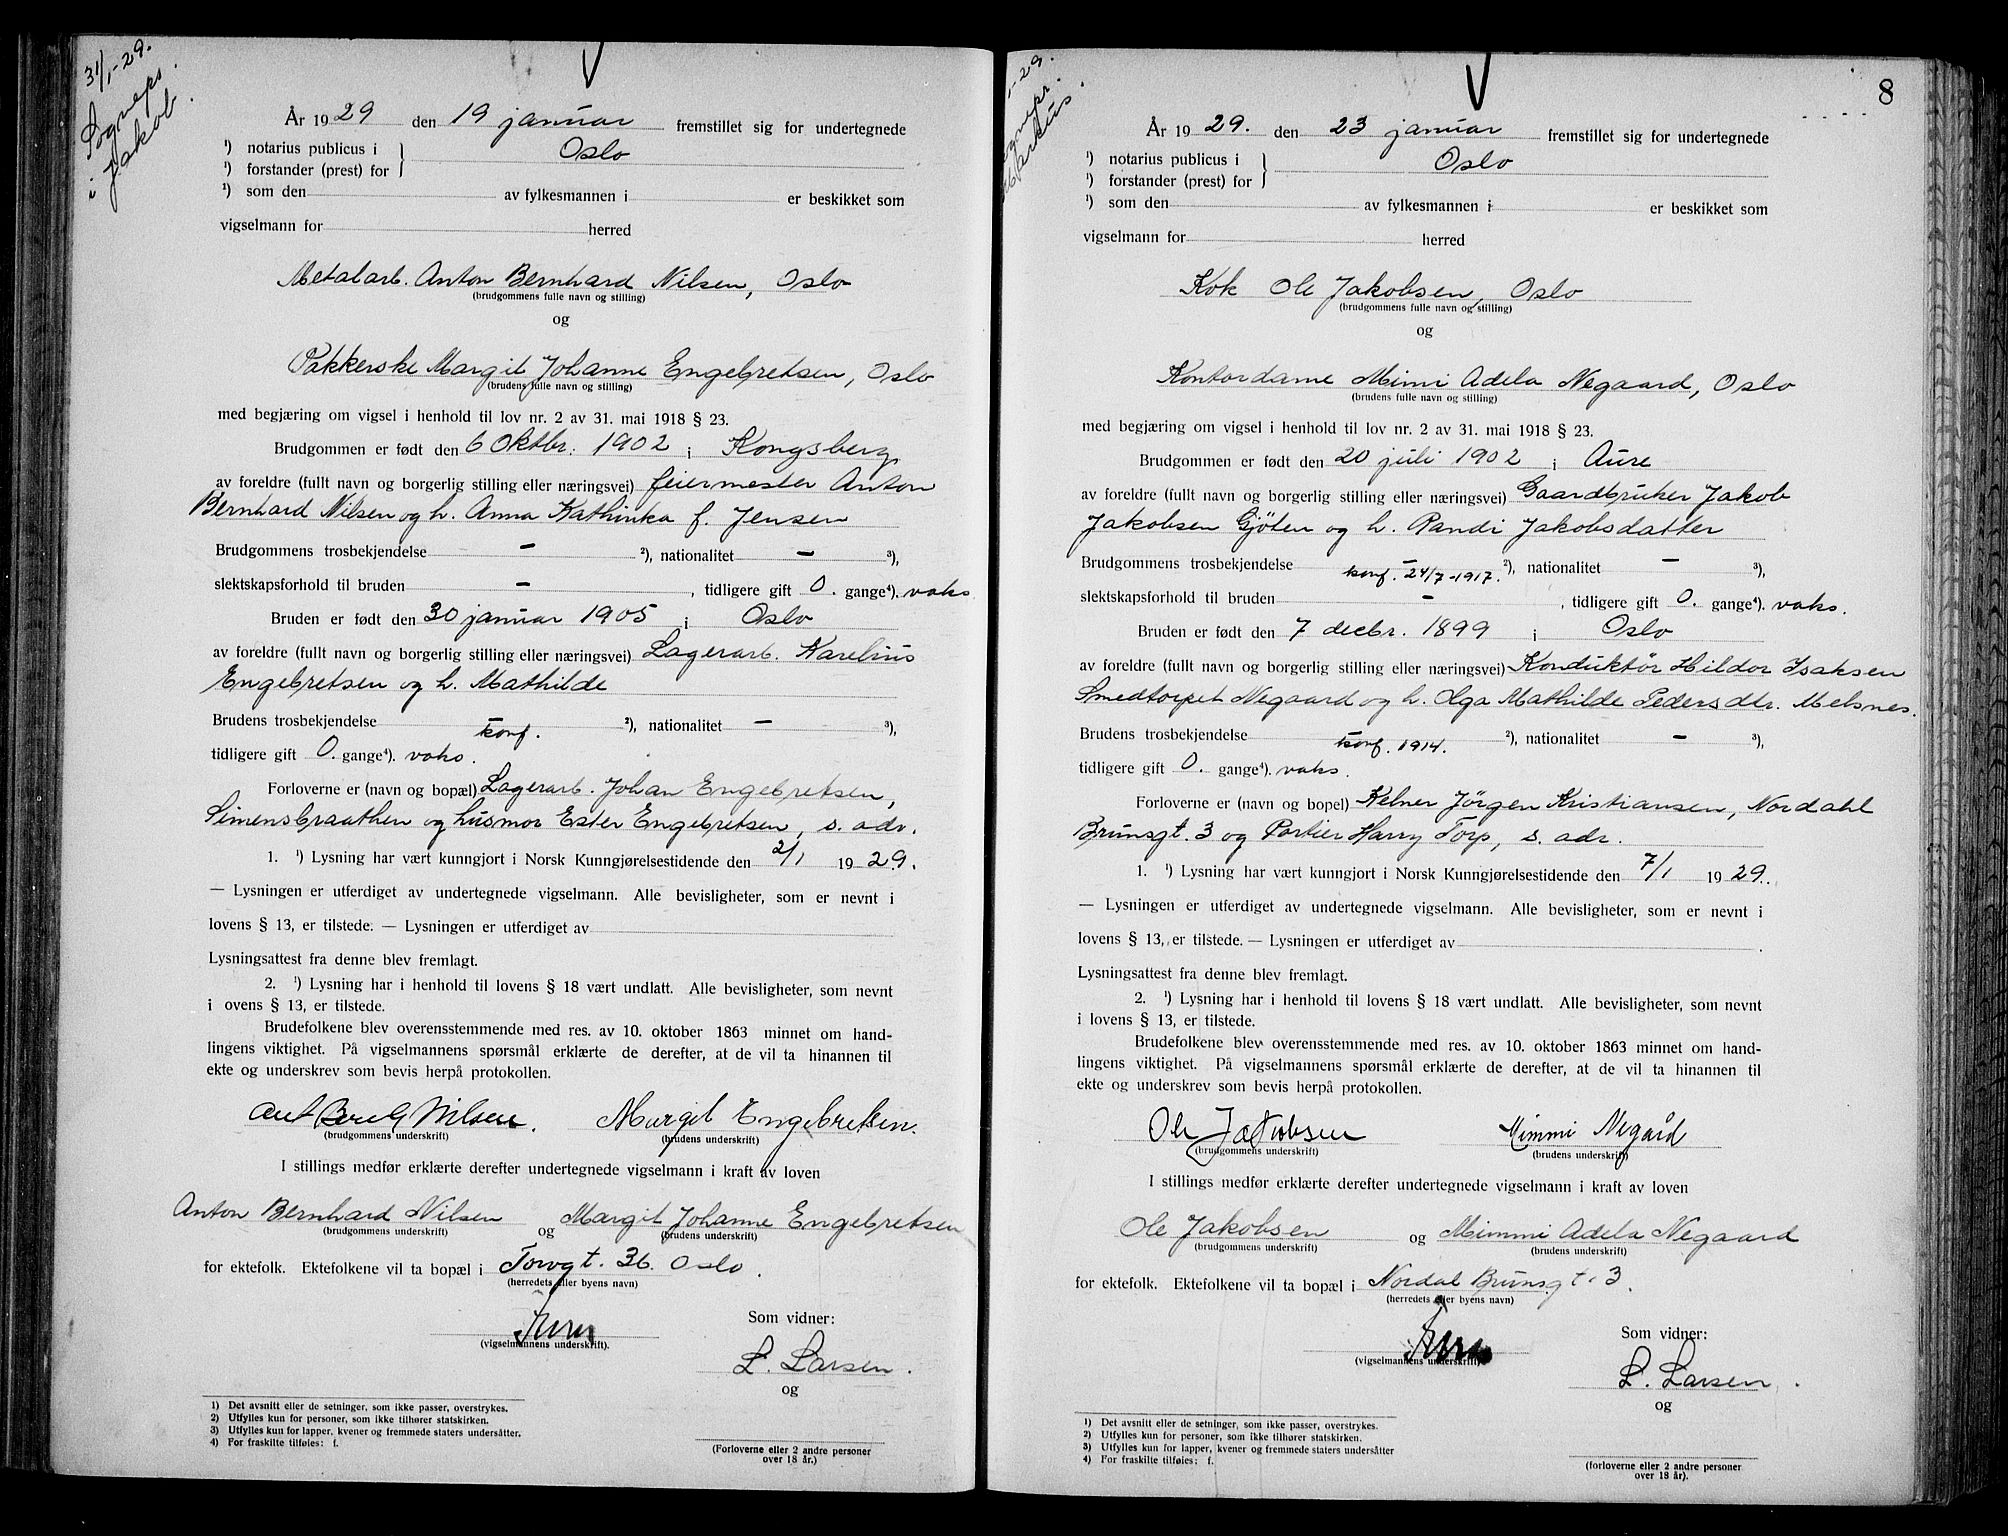 31/1-29.
Sogneps.
i Jakob.
År 1929 den 19 januar fremstillet sig for undertegnede
¹) notarius publicus i } Oslo
¹) forstander (prest) for
¹) som den av fylkesmannen i er beskikket som
vigselmann for herred
Metalarb. Anton Bernhard Nilsen, Oslo
(brudgommens fulle navn og stilling)
og
Pakkerske Margit Johanne Engebretsen, Oslo
(brudens fulle navn og stilling)
med begjæring om vigsel i henhold til lov nr. 2 av 31. mai 1918 § 23.
Brudgommen er født den 6 Oktbr. 1902 i Kongsberg
av foreldre (fullt navn og borgerlig stilling eller næringsvei) feiermester Anton
Bernhard Nilsen og h. Anna Kathinka f. Jensen
Brudgommens trosbekjendelse – ²), nationalitet – ³),
slektskapsforhold til bruden – , tidligere gift 0. gange⁴). vaks.
Bruden er født den 30 januar 1905 i Oslo
av foreldre (fullt navn og borgerlig stilling eller næringsvei) Lagerarb. Karelius
Engebretsen og h. Mathilde
Brudens trosbekjendelse konf. ²), nationalitet – ³),
tidligere gift 0. gange⁴). vaks.
Forloverne er (navn og bopæl) Lagerarb. Johan Engebretsen,
Simensbraathen og husmor Ester Engebretsen, s. adr.
1. ¹) Lysning har vært kunngjort i Norsk Kunngjørelsestidende den 2/1 1929.
— Lysningen er utferdiget av undertegnede vigselmann. Alle bevisligheter, som er nevnt i
lovens § 13, er tilstede. — Lysningen er utferdiget av
Lysningsattest fra denne blev fremlagt.
2. ¹) Lysning har i henhold til lovens § 18 vært undlatt. Alle bevisligheter, som nevnt
i ovens § 13, er tilstede.
Brudefolkene blev overensstemmende med res. av 10. oktober 1863 minnet om hand-
lingens viktighet. På vigselmannens spørsmål erklærte de derefter, at de vil ta hinannen til
ekte og underskrev som bevis herpå protokollen.
Ant Bernh Nilsen. Margit Engebretsen.
(brudgommens underskrift) (brudens underskrift)
I stillings medfør erklærte derefter undertegnede vigselmann i kraft av loven
Anton Bernhard Nilsen og Margit Johanne Engebretsen
(brudgommens underskrift) (brudens underskrift)
for ektefolk. Ektefolkene vil ta bopæl i Torvgt. 36. Oslo.
(herredets eller byens navn)
(vigselmannens underskrift).
Som vidner:
L. Larsen.
og
(Forloverne eller 2 andre personer
over 18 år.)
1) Det avsnitt eller de setninger, som ikke passer, overstrykes.
2) Utfylles kun for personer, som ikke tilhører statskirken.
3) Utfylles kun for lapper, kvener og fremmede staters undersåtter.
4) For fraskilte tilføies: f.
8
-29.
År 1929. den 23 januar fremstillet sig for undertegnede
¹) notarius publicus i } Oslo
¹) forstander (prest) for
¹) som den av fylkesmannen i er beskikket som
vigselmann for herred
Kok Ole Jakobsen, Oslo
(brudgommens fulle navn og stilling)
og
Kontordame Mimi Adela Negaard, Oslo
(brudens fulle navn og stilling)
med begjæring om vigsel i henhold til lov nr. 2 av 31. mai 1918 § 23.
Brudgommen er født den 20 juli 1902 i Aure
av foreldre (fullt navn og borgerlig stilling eller næringsvei) Gaardbruker Jakob
Jakobsen Gjöten og h. Randi Jakobsdatter
Brudgommens trosbekjendelse – konf. 24/7-1917. ²), nationalitet – ³),
slektskapsforhold til bruden – , tidligere gift 0. gange⁴). vaks.
Bruden er født den 7 decbr. 1899 i Oslo
av foreldre (fullt navn og borgerlig stilling eller næringsvei) Konduktör Hildor Isaksen
Smedtorpet Negaard og h. Olga Mathilde Pedersdtr. Melsnes.
Brudens trosbekjendelse konf. 1914. ²), nationalitet – ³),
tidligere gift 0. gange⁴). vaks.
Forloverne er (navn og bopel) Kelner Jörgen Kristiansen, Nordahl
Brunsgt. 3 og Portier Harry Torp, s. adr.
1. ¹) Lysning har vært kunngjort i Norsk Kunngjørelsestidende den 7/1 1929.
— Lysningen er utferdiget av undertegnede vigselmann. Alle bevisligheter, som er nevnt i
lovens § 13, er tilstede. — Lysningen er utferdiget av
Lysningsattest fra denne blev fremlagt.
2. ¹) Lysning har i henhold til lovens § 18 vært undlatt. Alle bevisligheter, som nevnt
i lovens § 13, er tilstede.
Brudefolkene blev overensstemmende med res. av 10. oktober 1863 minnet om hand-
lingens viktighet. På vigselmannens spørsmål erklærte de derefter, at de vil ta hinannen til
ekte og underskrev som bevis herpå protokollen.
Ole Jakobsen Mimmi Negård
(brudgommens underskrift) (brudens underskrift)
I stillings medfør erklærte derefter undertegnede vigselmann i kraft av loven
Ole Jakobsen og Mimmi Adela Negaard
(brudgommens underskrift) (brudens underskrift)
for ektefolk. Ektefolkene vil ta bopæl i Nordal Brunsgt. 3.
(herredets eller byens navn)
(vigselmannens underskrift)
Som vidner:
L. Larsen.
og
(forloverne eller 2 andre personer
over 18 år).
1) Det avsnitt eller de setninger, som ikke passer, overstrykes.
2) Utfylles kun for personer, som ikke tilhører statskirken.
3) Utfylles kun for lapper, kvener og fremmede staters undersåtter
4) For fraskilte tilføies: f.